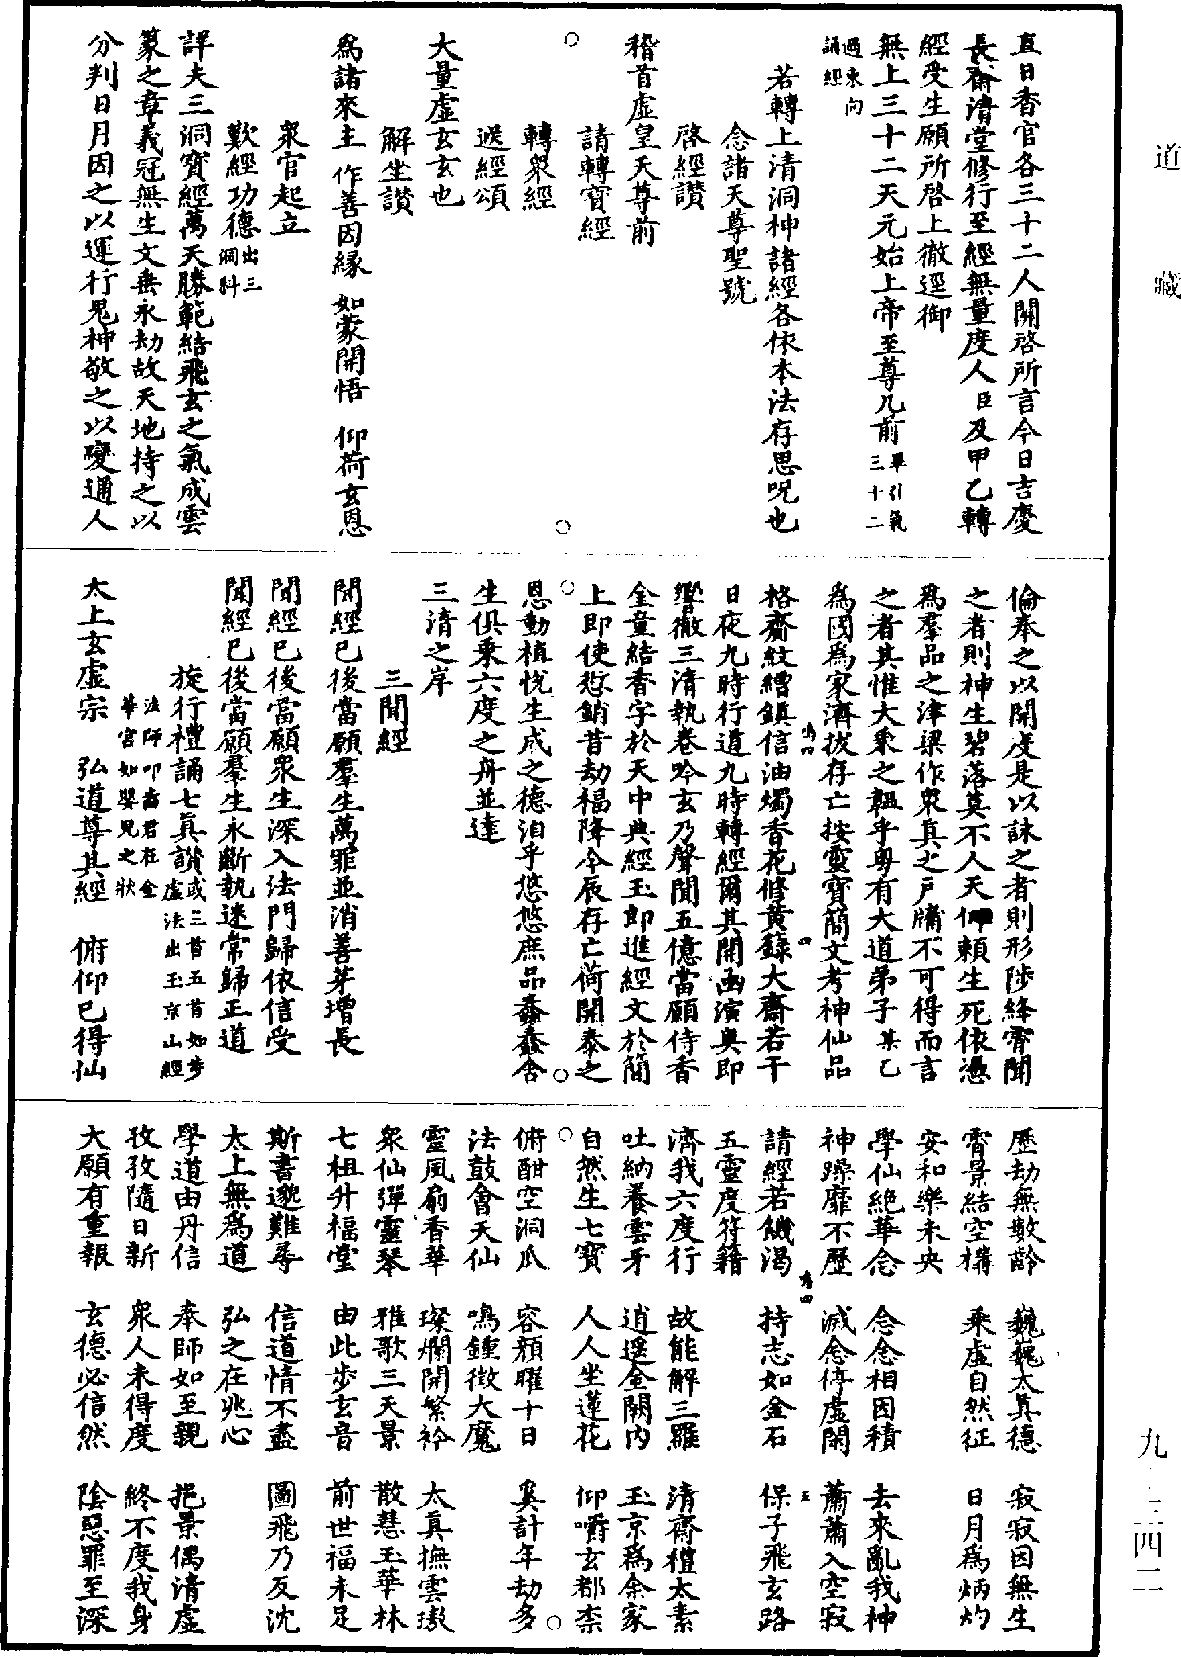 道藏
直日香官各三十二人開啓所言今日吉慶
長齋清堂修行至經無量度人臣及甲乙轉
經受生願所啓上徹逕御
無上三十二天元始上帝至尊几前畢引氣三十二
過東向誦經
若轉上清洞神諸經各依本法存思呪也
念諸天尊聖號
啓經讚
稽首虛皇天尊前
請轉寶經
○　○
轉衆經
送經頌
大量虛玄玄也
解坐讚
爲諸來主　作善因緣　如蒙開悟　仰荷玄恩
衆官起立
歎經功德出三洞科
詳夫三洞寶經萬天勝範結飛玄之氣成雲
篆之章義冠無生文垂永劫故天地持之以
分判日月因之以運行鬼神敬之以變通人
倫奉之以開度是以誦之者則形陟絳霄聞
之者則神生碧落莫不人天仰賴生死依憑
爲羣品之津梁作衆真之戶牖不可得而言
之者其惟大乘之韞乎粵有大道弟子某乙
爲國爲家濟拔存亡按靈寶簡文考神仙品
格齋紋繒鎮信油燭香花修黃籙大齋若干
日夜九時行道九時轉經爾其開函演奧即
響徹三清執卷吟玄乃聲聞五億當願侍香
金童結香字於天中典經玉郎進經文於簡
上即使愆銷昔劫福降今辰存亡荷開泰之
○　○
恩動植悅生成之德洎乎悠悠庶品蠢蠢含
生俱乘六度之舟並達
三清之岸
三聞經
聞經已後當願羣生萬罪並消善芽增長
聞經已後當願衆生深入法門歸依信受
聞經已後當願羣生永斷執迷常歸正道
旋行禮誦七真讚或三首五首如步虛法出玉京山經
法師叩齒君在金華宮如嬰兒之狀
太上玄虛宗　弘道尊其經　俯仰已得仙
歷劫無數齡　巍巍太真德　寂寂因無生
霄景結空構　乘虛自然征　日月爲炳灼
安和樂未央
學仙絕華念　念念相因積　去來亂我神
神躁靡不歷　滅念停虛閑　蕭蕭入空寂
請經若飢渴　持志如金石　保子飛玄路
五靈度符籍
濟我六度行　故能解三羅　清齋禮太素
吐納養雲牙　逍遥金闕內　玉京爲余家
自然生七寶　人人坐蓮花　仰嚼玄都柰
○　○
俯酣空洞瓜　容顏曜十日　奚計年劫多
法鼓會天仙　鳴鍾徵大魔
靈風扇香華　璨爛開繁衿　太真撫雲璈
衆仙彈靈琴　雅歌三天景　散慧玉華林
七祖升福堂　由此步玄音　前世福未足
斯書邈難尋　信道情不盡　圖飛乃反沈
太上無爲道　弘之在兆心
學道由丹信　奉師如至親　挹景偶清虛
孜孜隨日新　衆人未得度　終不度我身
大願有重報　玄德必信然　陰惡罪至深
九—三四二